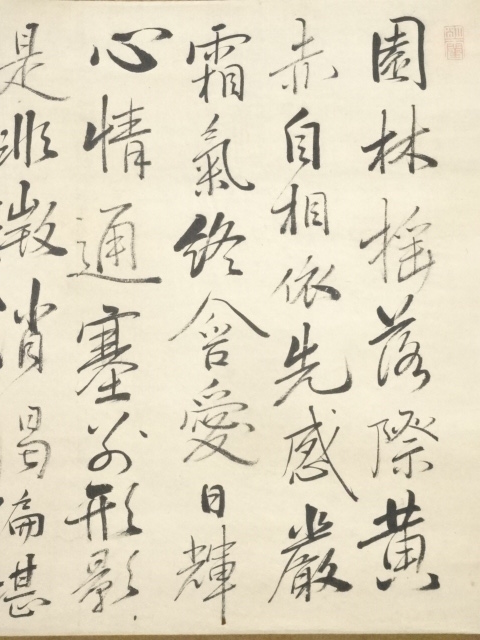 園林搖落際黄
赤自相依先感嚴
霜氣終含愛日輝
心情通塞別形影
是非微消渴偏堪